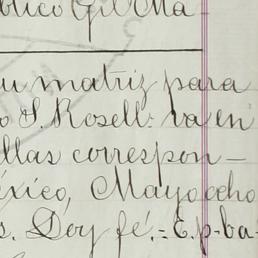 blico Gil Ma-
su matriz para
o S. Rosell: va en
llas correspon-
éxico, Mayo ocho
s. Doy fé.=E.p-ba-